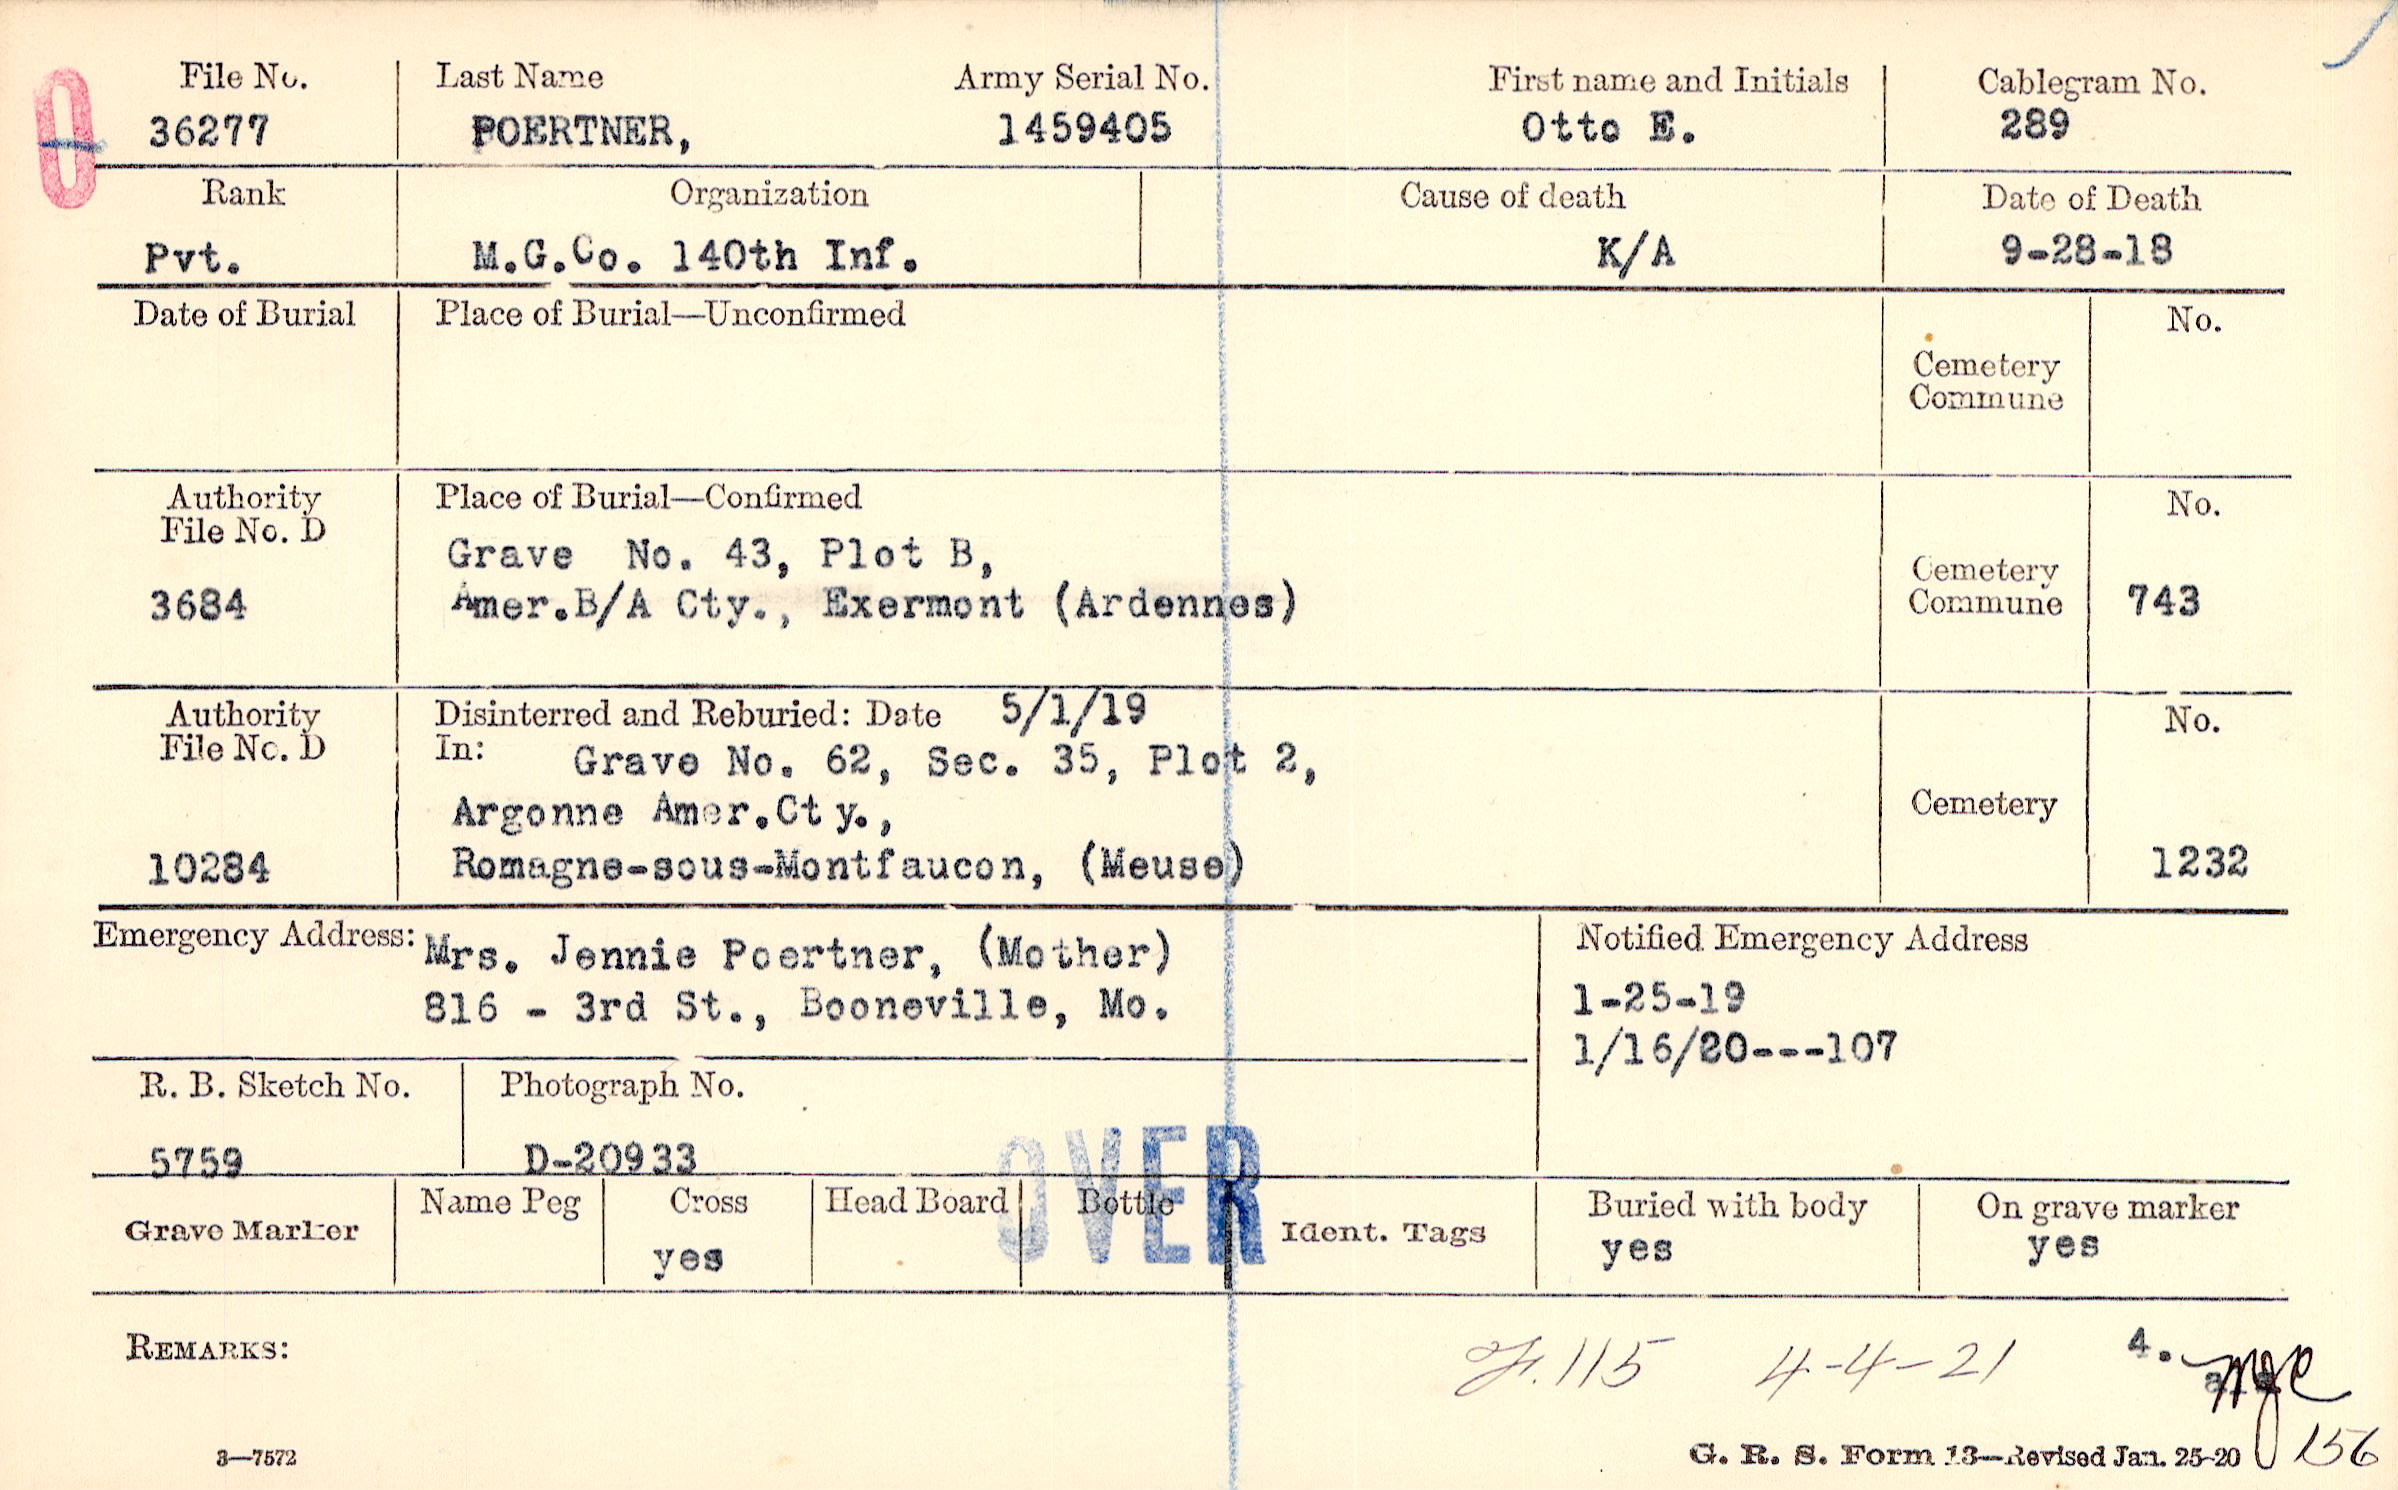 O
File No. Last Name Army Serial No. First name and Initials Cablegram No.
36277 POERTNER, 1459405 Otto E. 289
Rank Organization Cause of death Date of Death
Pvt. M.G.Co. 140th Inf. K/A 9-28-18
Date of Burial Place of Burial—Unconfirmed No.
Cemetery
Commune
Authority Place of Burial—Confirmed No.
File No. D
Grave No. 43, Plot B,
Cemetery
3684 Amer.B/A Cty., Exermont (Ardennes) Commune 743
Authority Disinterred and Reburied: Date 5/1/19 No.
File No. D In: Grave No. 62, Sec. 35, Plot 2,
Argonne Amer.Cty., Cemetery
10284 Romagne-sous-Montfaucon, (Meuse) 1232
Emergency Address: Mrs. Jennie Poertner, (Mother) Notified Emergency Address
816 - 3rd St., Booneville, Mo. 1-25-19
1/16/20---107
R. B. Sketch No. Photograph No.
5759 D-20933
OVER
Grave Marker Name Peg Cross Head Board Bottle Ident. Tags Buried with body On grave marker
yes yes yes
REMARKS: 115 4-4-21 4.
3—7572 G. R. S. Form 13—Revised Jan. 25-20 156